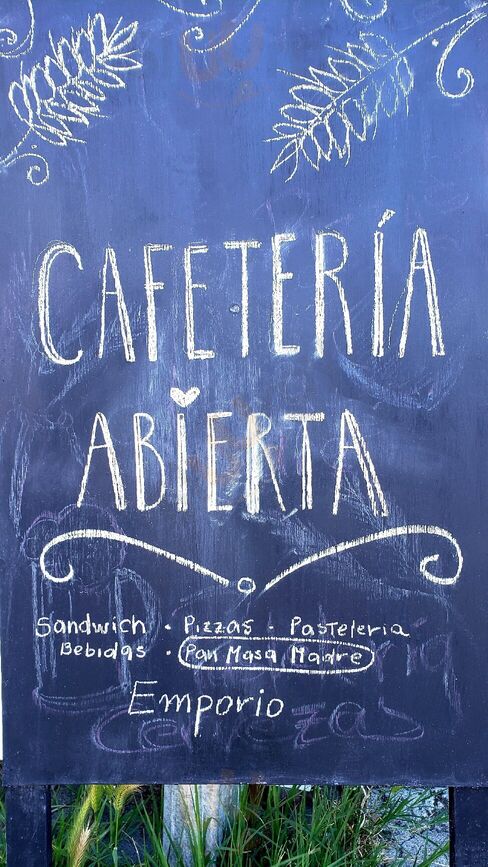 CAFETERÍA
ABIERTA
Sandwich · Pizzas · Pasteleria
Bebidas · Pan Masa Madre
Emporio
Cervezas